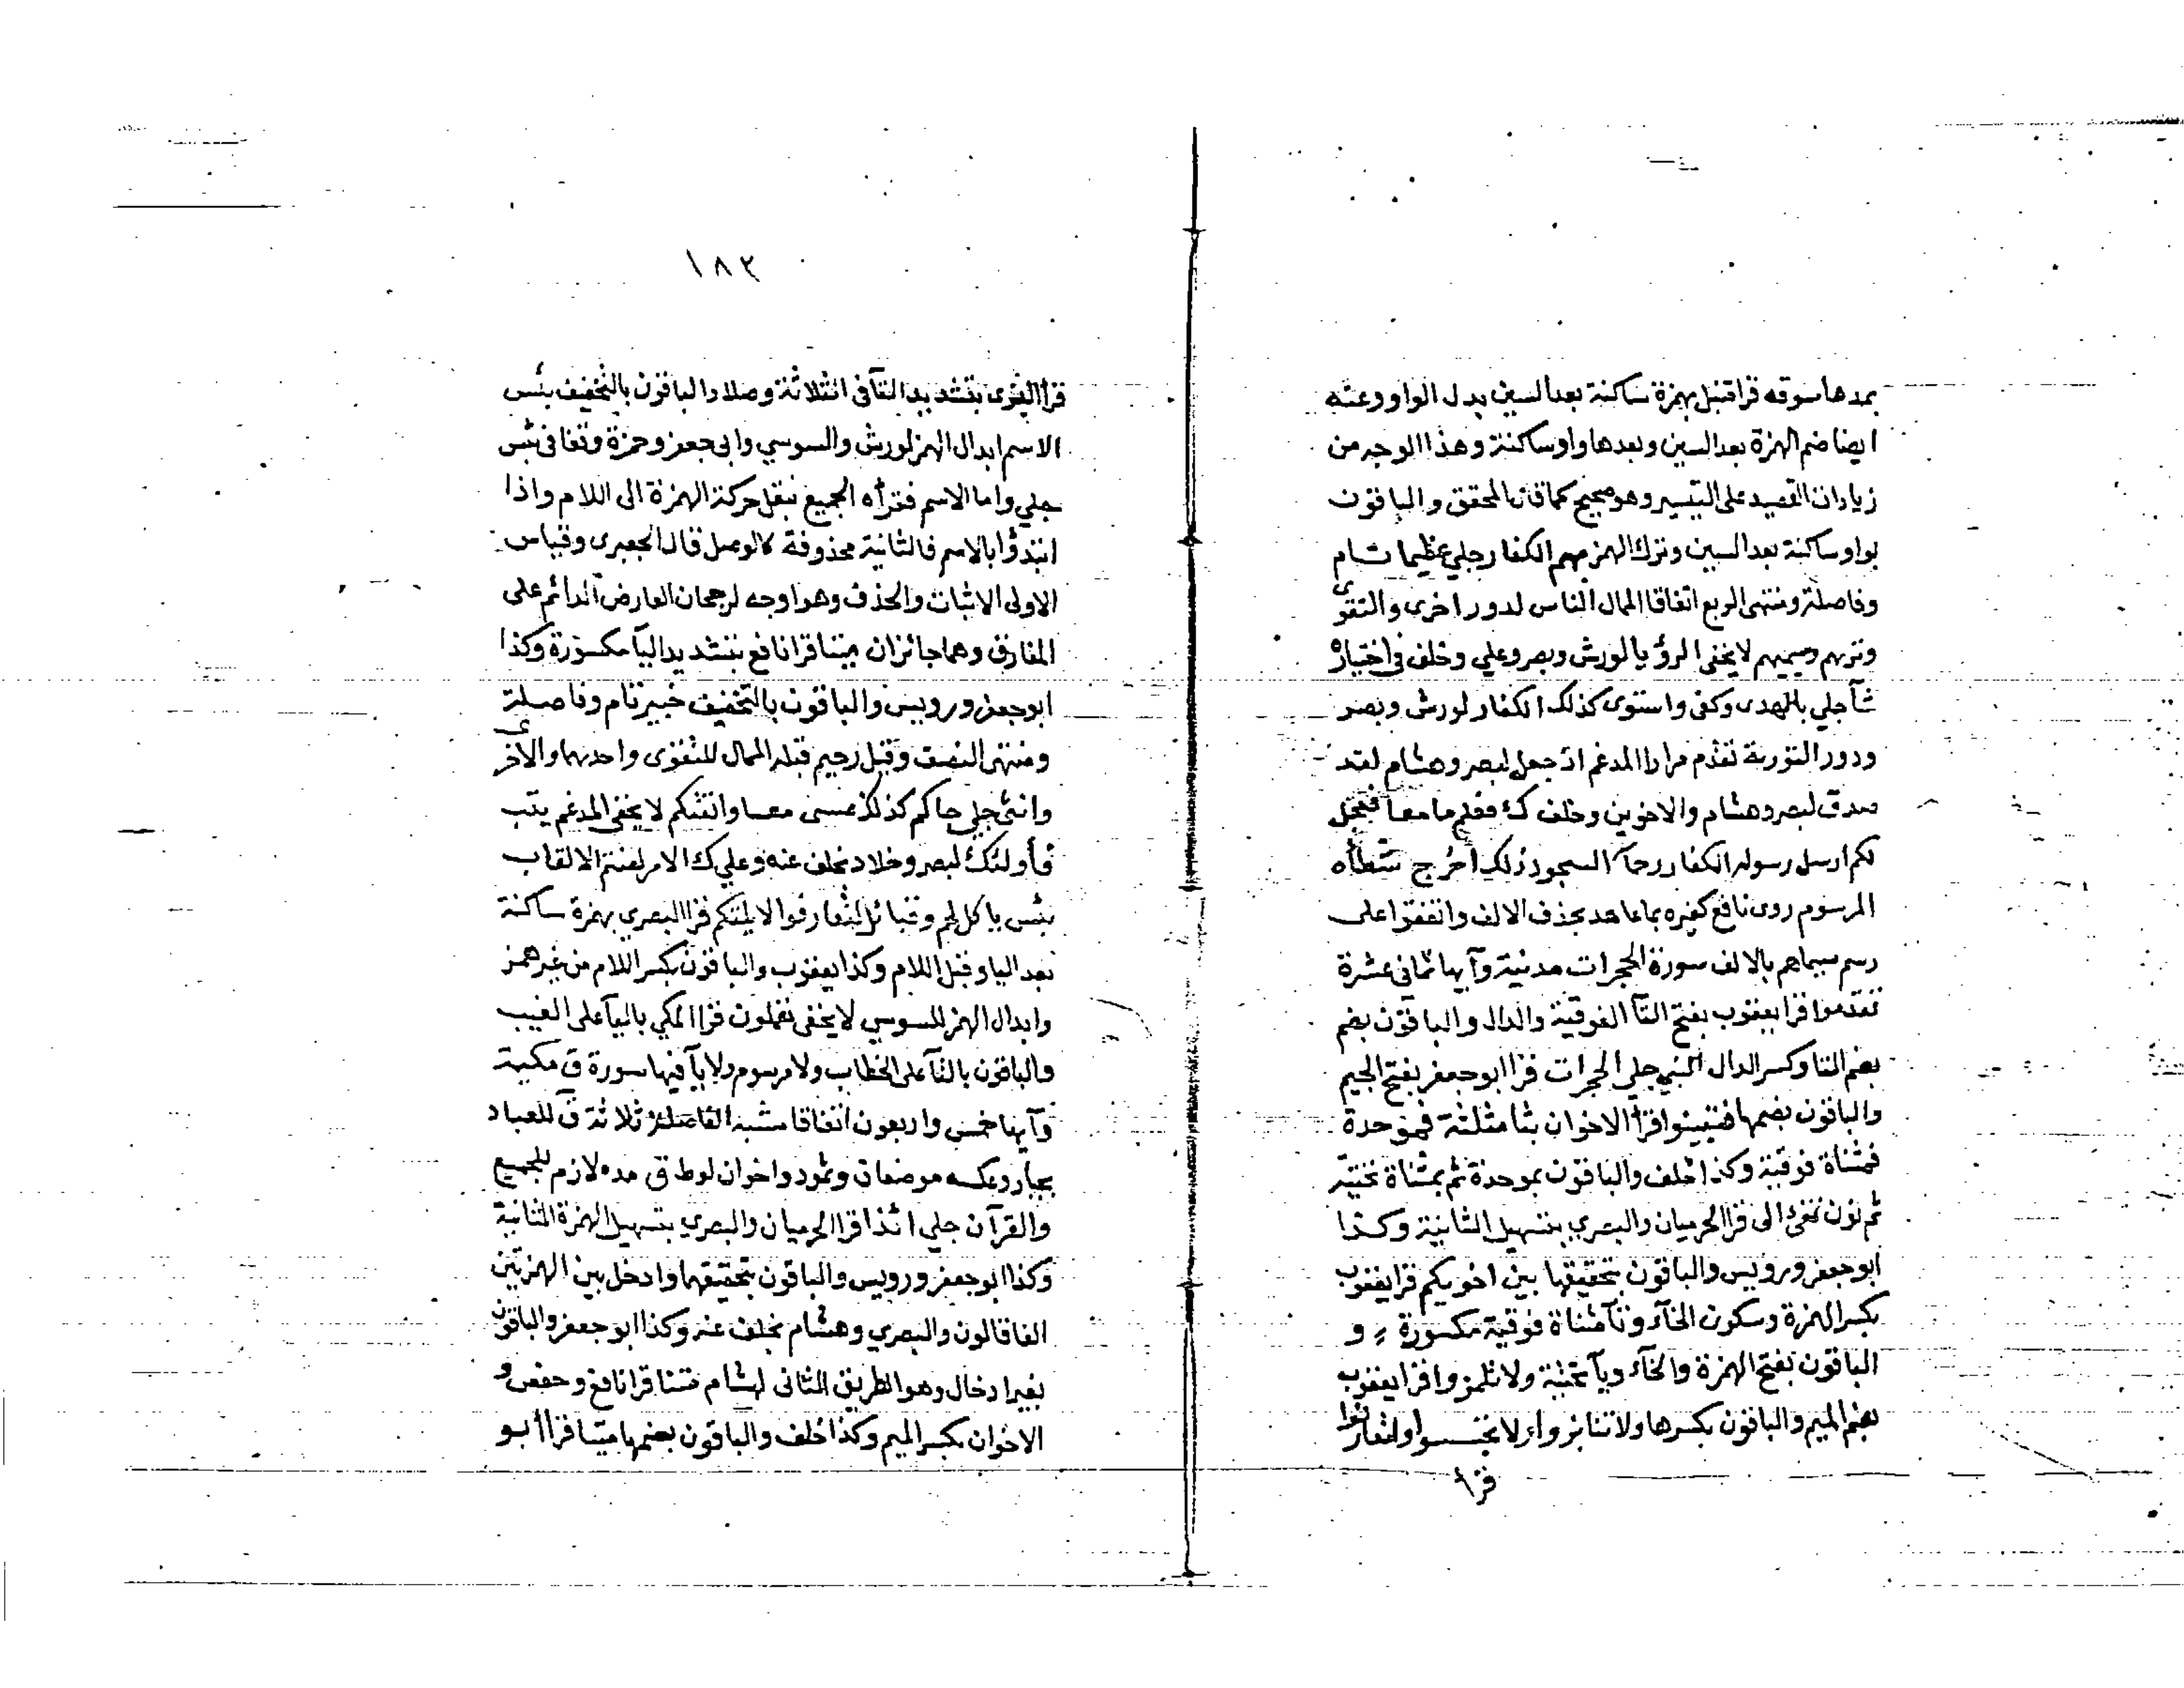 بمدها سوقه قرا قنبل بهمزة ساكنة بعد السين بدل الواو وعنه
ايضا ضم الهمزة بعد السين وبعدها واو ساكنة وهذا الوجه من
زيادات القصيد على التيسير وهو صحيح كما قال المحقق والباقون
بواو ساكنة بعد السين وترك الهمز بهم الكفار جلي عظيما تام
وفاصلة ومنتهى الربع اتفاقا الممال الناس لدور اخرى والتقوى
وتريهم وسيميهم لا يخفى الرؤيا لورش وبصر وعلي وخلف في اختياره
شآ جلي بالهدى وكفى واستوى كذلك الكفار لورش وبصر
ودور التورية تقدم مرارا المدغم اذ جعل لبصر وهشام لقد
صدق لبصر وهشام والاخوين وخلف ك فعلم ما معا فعجل
لكم ارسل رسوله الكفار رحمآ السجود ذلك اخرج شطأه
المرسوم روى نافع كغيره بما عاهد بحذف الالف واتفقوا على
رسم سيماهم بالالف سورة الحجرات مدنية وآيها ثماني عشرة
تقدموا قرا يعقوب بفتح التآ الفوقية والدال والباقون بضم
بضم التا وكسر الدال النبي جلي الحجرات قرا ابو جعفر بفتح الجيم
والباقون بضمها فتبينوا قرأ الاخوان بثا مثلثة فموحدة
فمثناة فوقية وكذا خلف والباقون بموحدة ثم بمثناة تحتية
ثم نون تفئ الى قرا الحرميان والبصري بتسهيل الثانية وكذا
ابو جعفر ورويس والباقون بتحقيقها بين اخويكم قرا يعقوب
بكسر الهمزة وسكون الخآء وتآ مثناة فوقية مكسورة و
الباقون بفتح الهمزة والخآء ويآ تحتية ولا تلمزوا قرا يعقوب
بضم الميم والباقون بكسرها ولا تنابزوا ولا تجسسوا ولتعارفوا
قرا
١٨٣
قرا البزى بتشديد التآ في الثلاثة وصلا والباقون بالتخفيف بئس
الاسم ابدال الهمز لورش والسوسي وابي جعفر وحمزة وقفا في بئس
جلي واما الاسم فقرأه الجميع بنقل حركة الهمزة الى اللام واذا
ابتدؤا بالاسم فالثانية محذوفة كالوصل قال الجعبرى وقياس
الاولى الاثبات والحذف وهو اوجه لرجحان العارض الدائم على
المفارق وهما جائزان ميتا قرا نافع بتشديد اليآ مكسورة وكذا
ابو جعفر ورويس والباقون بالتخفيف خبير تام وفاصلة
ومنتهى النصف وقيل رحيم قبله الممال للتقوى واحديهما والاخرى
وانثى جلي جاكم كذلك عسى معا واتقيكم لا يخفى المدغم يتب
فأولئك لبصر وخلاد بخلف عنه وعلي ك الامر لعنتم الالقاب
بئس ياكل لحم وقبائل لتعارفوا لا يلتكم قرا البصري بهمزة ساكنة
بعد اليا وقبل اللام وكذا يعقوب والباقون بكسر اللام من غير همز
وابدال الهمز للسوسي لا يخفى تعملون قرا المكي باليآ على الغيب
والباقون بالتآ على الخطاب ولا مرسوم ولا يآ فيها سورة ق مكية
وآيها خمس واربعون اتفاقا مشبه الفاصلة ثلاثة ق للعباد
بجبار وعكسه موضعان وثمود واخوان لوط ق مده لازم للجميع
والقرآن جلي ائذا قرا الحرميان والبصري بتسهيل الهمزة الثانية
وكذا ابو جعفر ورويس والباقون بتحقيقها وادخل بين الهمزتين
الفا قالون والبصري وهشام بخلف عنه وكذا ابو جعفر والباقون
بغير ادخال وهو الطريق الثاني لهشام متنا قرا نافع وحفص و
الاخوان بكسر الميم وكذا خلف والباقون بضمها ميتا قرأ ابو